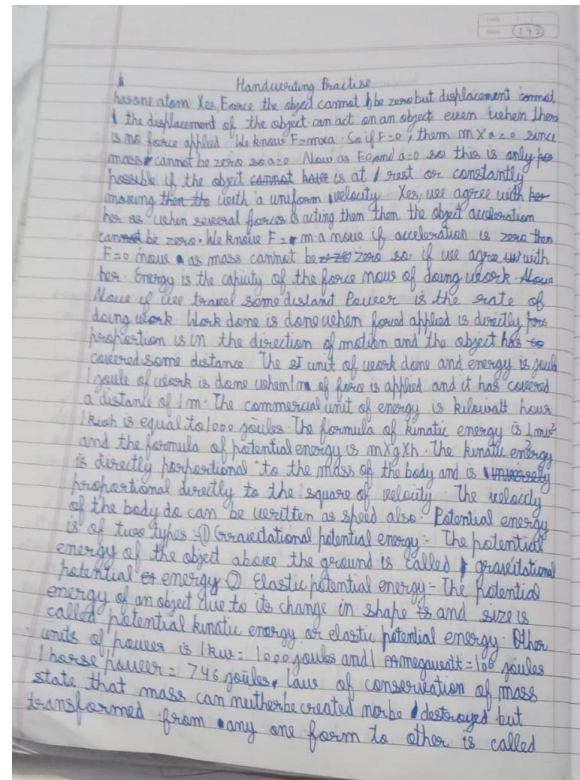 192
Handwriting Practise
has one atom Yes, Force the object cannot be zero but displacement cannot
the displacement of the object can act on an object even when there
is no force applied. We know F=mxa. So if F=0, then m x a = 0 since
mass cannot be zero so a=0 Now as F=0 and a=0 so this is only
possible if the object cannot have is at rest or constantly
moving then the with a uniform velocity. Yes, we agree with her
her as when several forces acting then then the object acceleration
cannot be zero. We know F= m a now if acceleration is zero then
F=0 now as mass cannot be zero so if we agree with
her. Energy is the capicity of the force mous of doing work.
Now if we travel some distant Power is the rate of
doing work Work done is done when forced applied is directly
proportion is in the direction of motion and the object has
covered some distance. The SI unit of work done and energy is joule
1 joule of work is done when 1n of force is applied and it has covered
a distance of 1m. The commercial unit of energy is kilowatt hour
1kwh is equal to 1000 joules The formula of kinatic energy is 1mv²
and the formula of potential energy is mxgxh. The kinatic energy 2
is directly porportional to the mass of the body and is inversely
proportional directly to the square of velocity The velocity
of the body do can be written as speed also. Potential energy
is of two types :- ① Gravitational potential energy :- The potential
energy of the object above the ground is called gravitational
potential energy ② Elastic potential energy - The potential
energy of an object due to its change in shape and size is
called potential kinatic energy or elastic potential energy. Other
units of power is 1kw = 1000 joules and 1 megawatt = 10⁶ joules
1 horse power = 746 joules. Law of conservation of mass
state that mass can neither be created nor be destroyed but
transformed from any one form to other is called